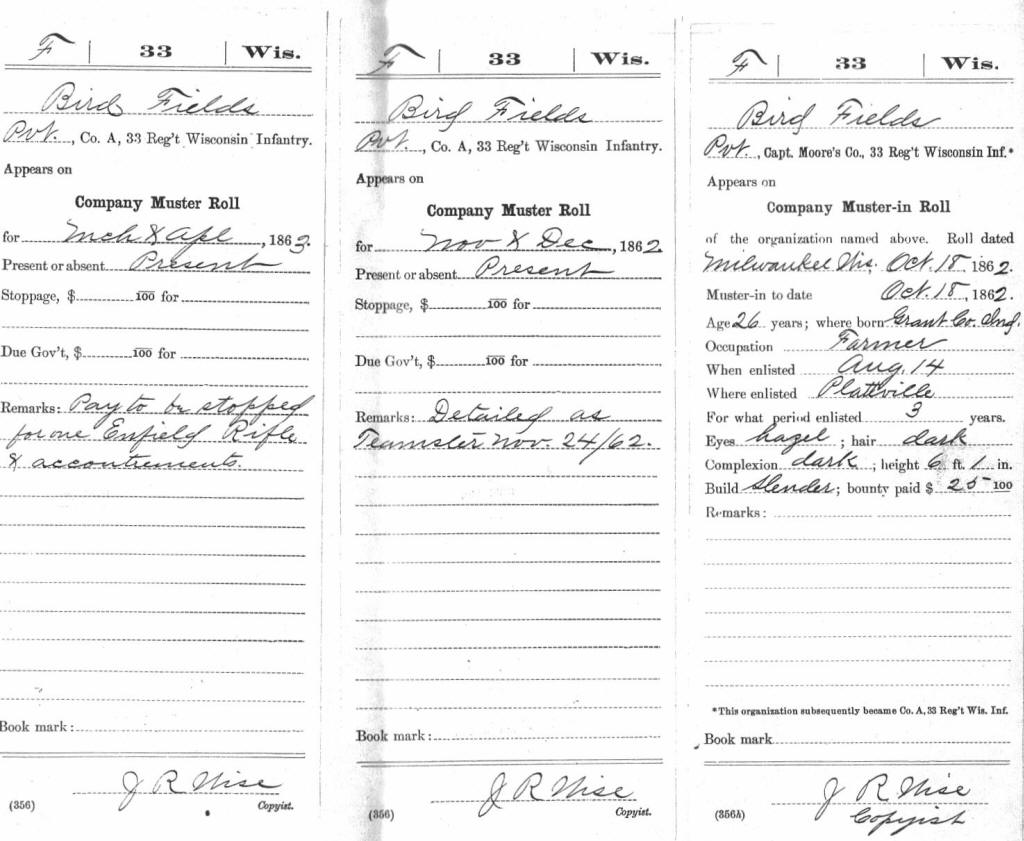 F | 33 | Wis.
Bird Fields
Pvt., Co. A, 33 Reg't Wisconsin Infantry.
Appears on
Company Muster Roll
for Mch & Apl, 1863.
Present or absent Present
Stoppage, $ 100 for
Due Gov't, $ 100 for
Remarks: Pay to be stopped
for one Enfield Rifle
& accoutrements.
Book mark:
J R Wise
(356) Copyist.
F | 33 | Wis.
Bird Fields
Pvt., Co. A, 33 Reg't Wisconsin Infantry.
Appears on
Company Muster Roll
for Nov & Dec, 1862
Present or absent Present
Stoppage, $ 100 for
Due Gov't, $ 100 for
Remarks: Detailed as
Teamster Nov. 24/62.
Book mark:
J R Wise
(356) Copyist.
F | 33 | Wis.
Bird Fields
Pvt., Capt. Moore's Co., 33 Reg't Wisconsin Inf.*
Appears on
Company Muster-in Roll
of the organization named above. Roll dated
Milwaukee Wis. Oct. 18, 1862.
Muster-in to date Oct. 18, 1862.
Age 26 years; where born Grant Co. Ind.
Occupation Farmer
When enlisted Aug. 14
Where enlisted Plattville
For what period enlisted 3 years.
Eyes hazel; hair dark
Complexion dark; height 6 ft. 1 in.
Build slender; bounty paid $ 25 100
Remarks:
*This organization subsequently became Co. A, 33 Reg't Wis. Inf.
Book mark
J R Wise
(356h) Copyist